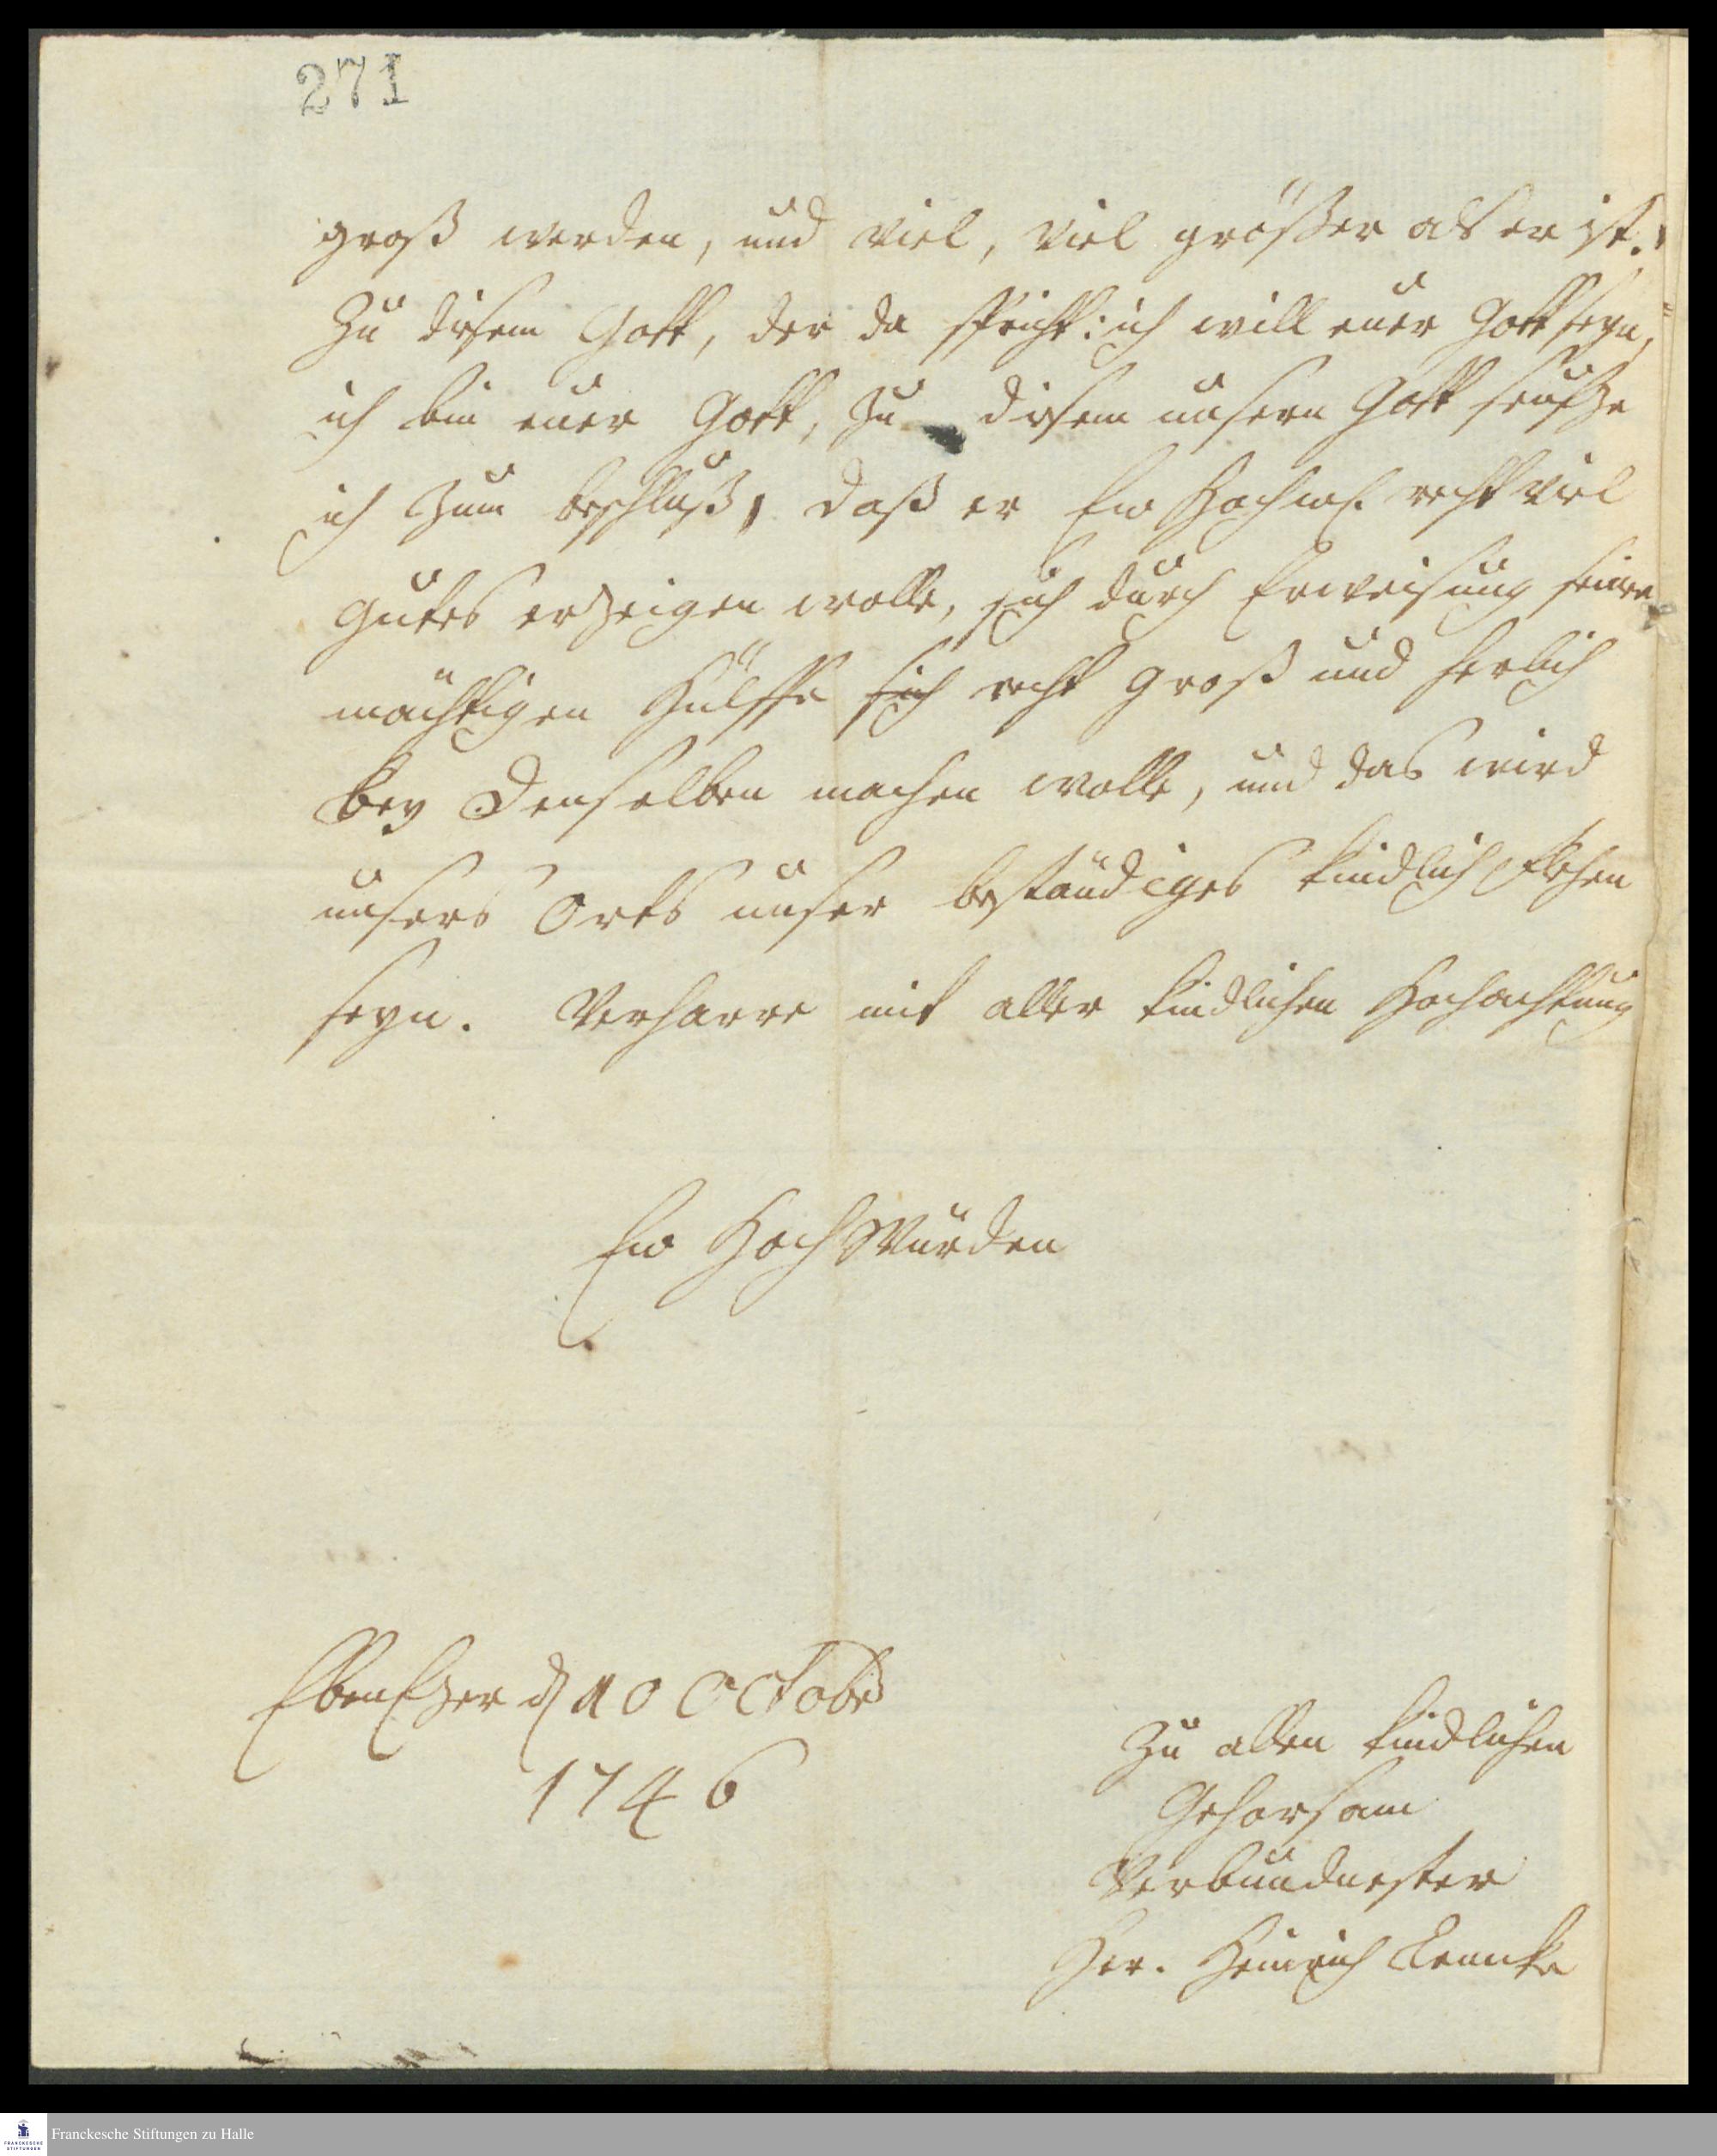 271
groß werden, und viel, viel größer als er ist.
Zu diesem Gott, der da spricht: ich will euer Gott seyn,
ich bin euer Gott, zu diesem unsern Gott seufze
ich zum beschluß, daß er Ew Hochw. recht viel
gutes erzeigen wolle, sich durch Erweisung seiner
mächtigen Hülffe sich recht groß und herlich
bey Denselben machen wolle, und das wird
unsers Orts unser beständiges kindlich flehen
seyn. Verharre mit aller kindlichen Hochachtung
Ew HochWürden
EbenEzer d 10 Octobr
1746
Zu allen kindlichen
Gehorsam
Verbundnester
Her. Heinrich Lemke
Franckesche Stiftungen zu Halle
FRANCKESCHE
STIFTUNGEN